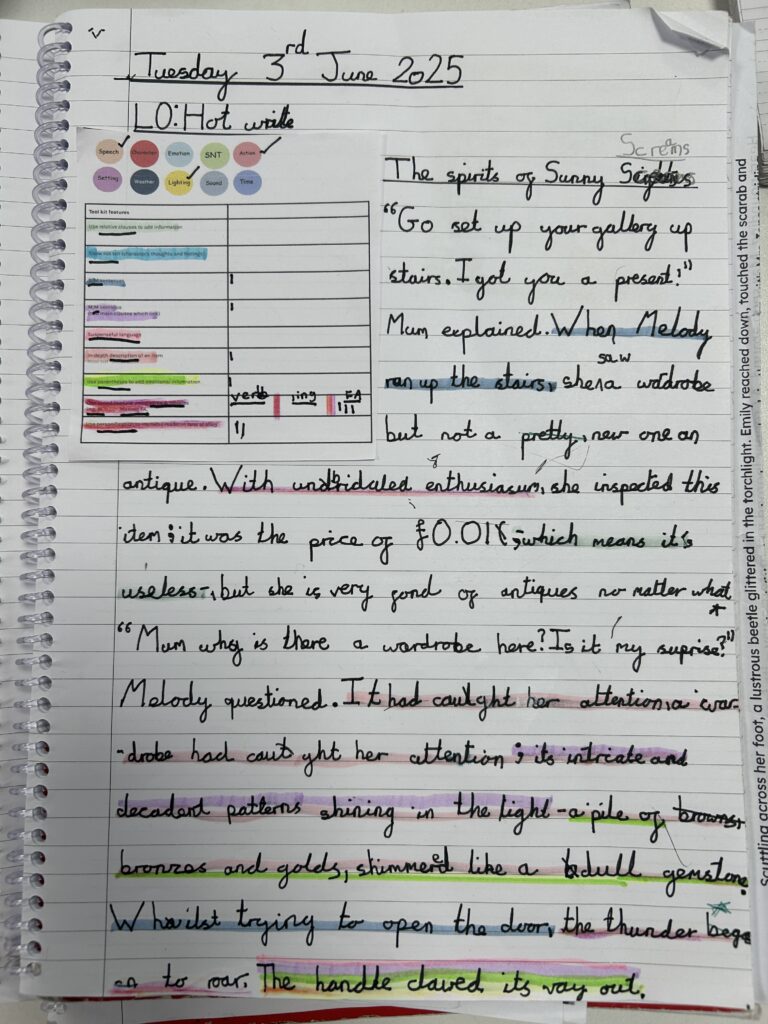 Tuesday 3rd June 2025
LO: Hot write
Speech Character Emotion SNT Action
Setting Weather Lighting Sound Time
Tool kit features
Use relative clauses to add information
Show not tell (character's thoughts and feelings)
Suspenseful language
In-depth description of an item
Use parenthesis to add additional information
verb ing FA
Screams
The spirits of Sunny
"Go set up your gallery up
stairs. I got you a present!"
Mum explained. When Melody
saw
ran up the stairs, she a wardrobe
but not a pretty, new one an
antique. With unbridaled enthusiasum, she inspected this
item; it was the price of £0.01K -which means it's
useless-, but she is very fond of antiques no matter what
"Mum why is there a wardrobe here? Is it my suprise?"
Melody questioned. It had caught her attention, a war-
-drobe had caught her attention; its intricate and
decadent patterns shining in the light -a pile of browns,
bronzes and golds, shimmered like a dull gemstone.
Whailst trying to open the door, the thunder bega
an to roar. The handle clawed its way out.
Scuttling across her foot, a lustrous beetle glittered in the torchlight. Emily reached down, touched the scarab and